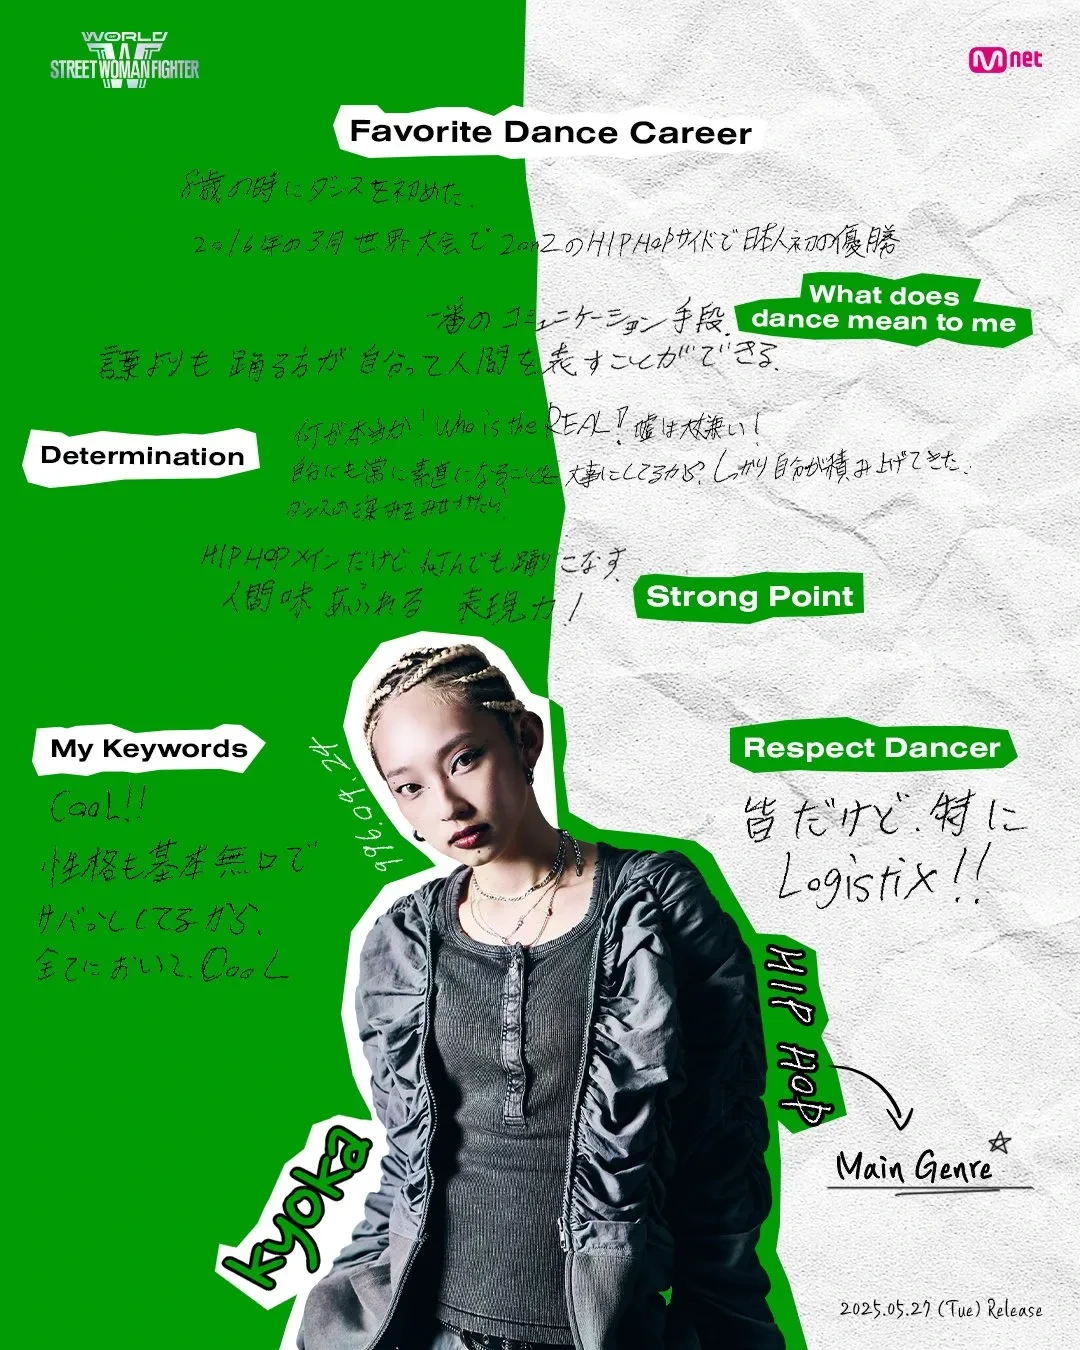 WORLD
W
STREET WOMAN FIGHTER
Mnet
Favorite Dance Career
8歳の時にダンスを初めた.
2016年の3月世界大会で2on2のHIPHOPサイドで日本人初の優勝
What does
dance mean to me
一番のコミュニケーション手段.
言葉よりも踊る方が自分って人間を表すことができる.
Determination
何が本当か「Who is the REAL?」嘘は大嫌い!
自分にも常に素直になることを大事にしてるから,しっかり自分が積み上げてきた.
ダンスの深みをみせつけたい
HIPHOPメインだけど何んでも踊りこなす.
人間味あふれる 表現力!
Strong Point
My Keywords
CooL!!
性格も基本無口で
サバっとしてるから.
全てにおいて.CooL
1996.09.24
Respect Dancer
皆だけど.特に
Logistix!!
HIP HOP
Main Genre
kyoka
2025.05.27 (Tue) Release